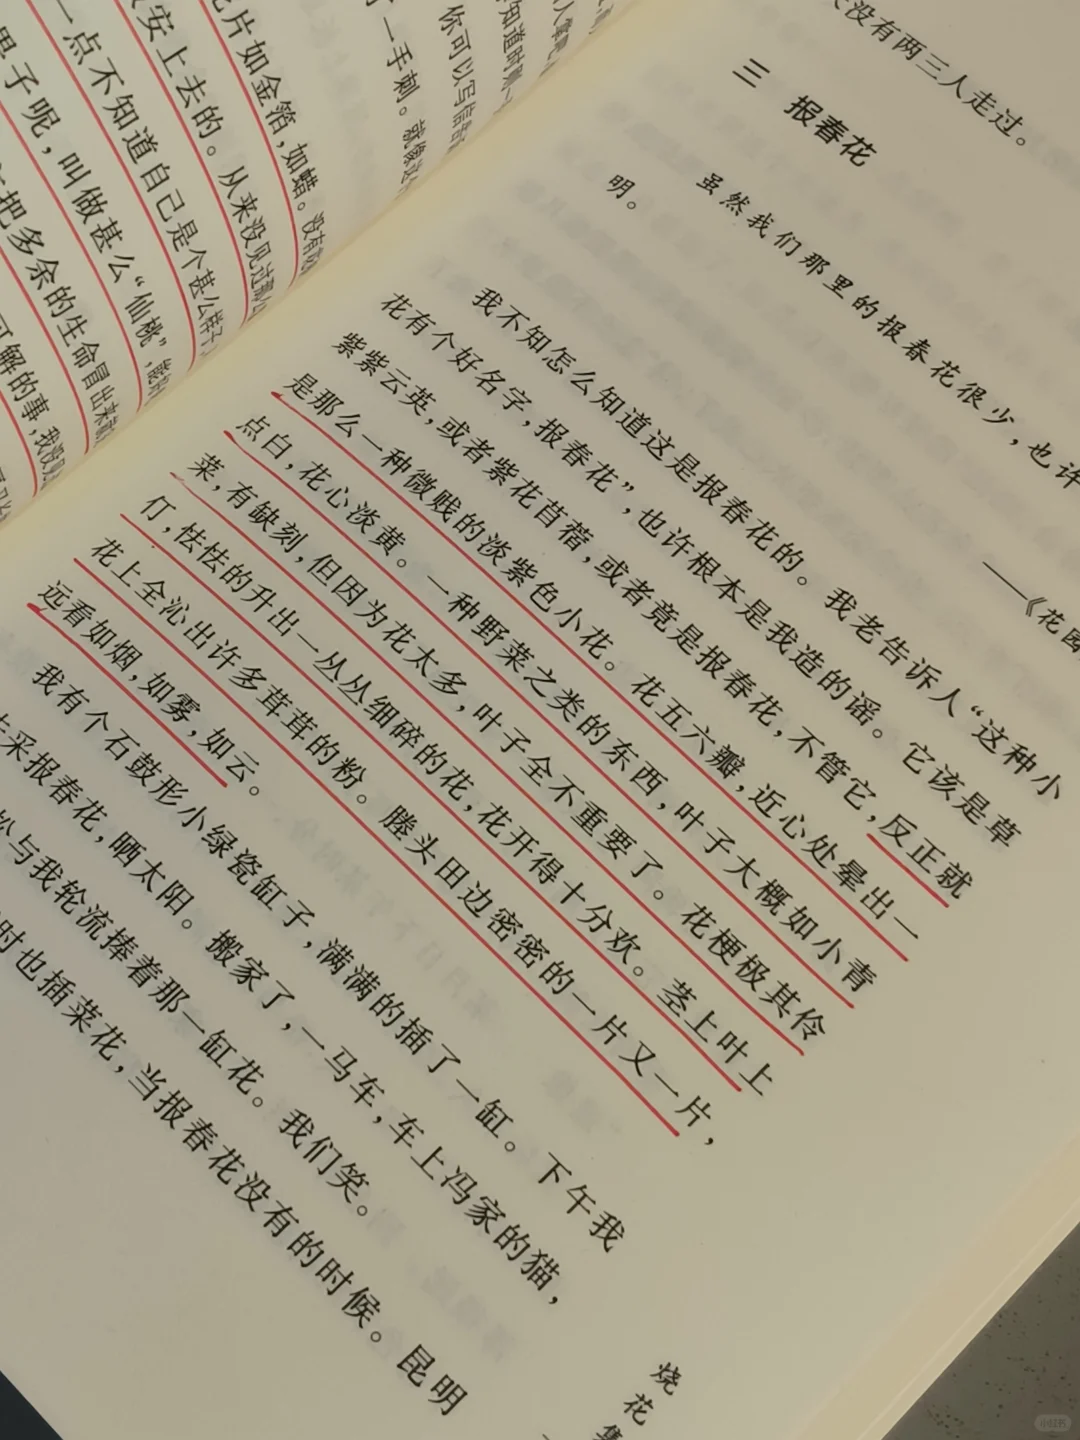 花片如金箔，如蜡。没有
安上去的。从来没见过那么
一点不知道自己是个甚么样子
里子呢，叫做甚么“仙桃”，能
把多余的生命冒出来
可解的事，我没见
了一手刺。就像
你可以写信告
知道时
没有两三人走过。
三 报春花
虽然我们那里的报春花很少，也许
明。
——《花园
我不知怎么知道这是报春花的。我老告诉人“这种小
花有个好名字，报春花”，也许根本是我造的谣。它该是草
紫紫云英，或者紫花苜蓿，或者竟是报春花，不管它，反正就
是那么一种微贱的淡紫色小花。花五六瓣，近心处晕出一
点白，花心淡黄。一种野菜之类的东西，叶子大概如小青
菜，有缺刻，但因为花太多，叶子全不重要了。花梗极其伶
仃，怯怯的升出一丛丛细碎的花，花开得十分欢。茎上叶上
花上全沁出许多茸茸的粉。塍头田边密密的一片又一片，
远看如烟，如雾，如云。
我有个石鼓形小绿瓷缸子，满满的插了一缸。下午我
去采报春花，晒太阳。搬家了，一马车，车上冯家的猫，
松与我轮流捧着那一缸花。我们笑。
时也插菜花，当报春花没有的时候。昆明
烧花集